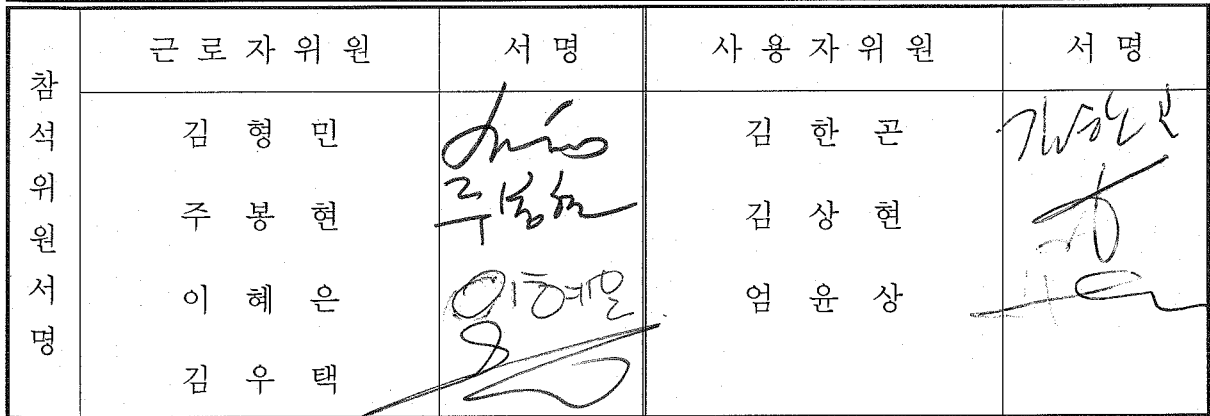 참석위원서명
근로자위원 서명 사용자위원 서명
김형민 김한곤
주봉현 주봉현 김상현
이혜은 이혜은 엄윤상
김우택